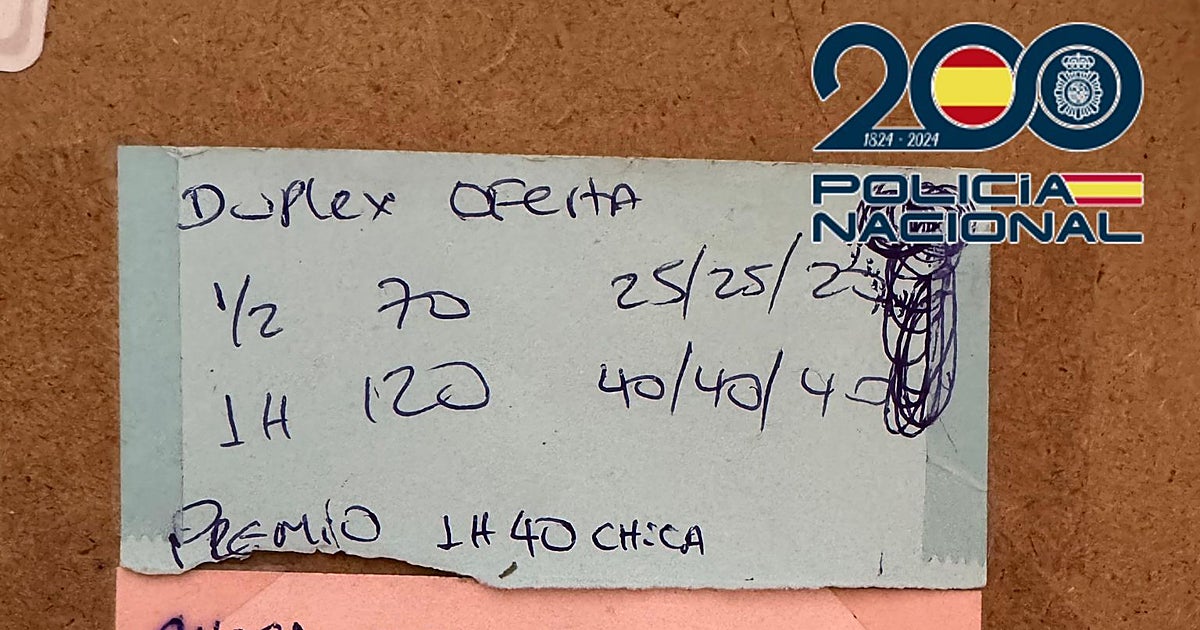 200
1824 - 2024
POLICÍA
NACIONAL
DUPLEX OFERTA
1/2 70 25/25/25
1H 120 40/40/40
PREMIO 1H 40 CHICA